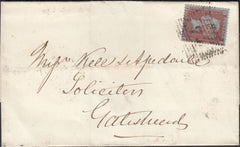 Messrs Keel & Apedaile
Solicitors
Gateshead